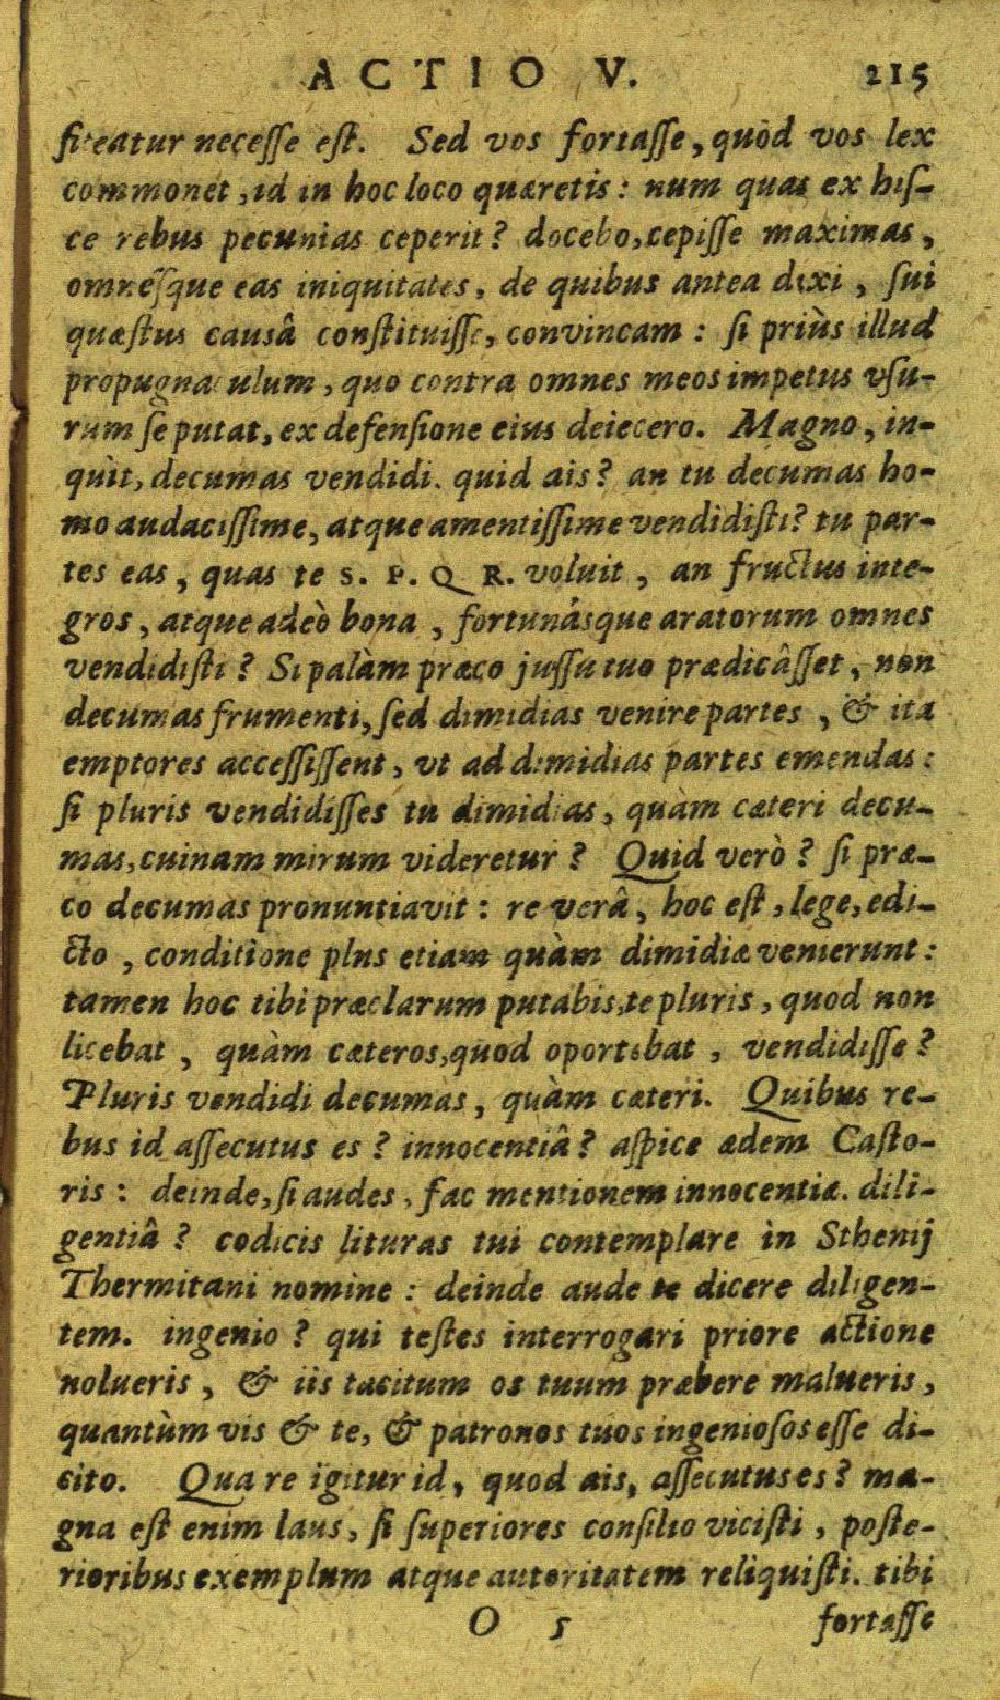 ACTIO V. 215
fiteatur necesse est. Sed vos fortasse, quòd vos lex
commonet, id in hoc loco quæretis: num quas ex hiſ-
ce rebus pecunias ceperit? docebo, cepiſſe maximas,
omnéſque eas iniquitates, de quibus antea dixi, ſui
quæſtus causâ conſtituiſſe, convincam: ſi priùs illud
propugnaculum, quo contra omnes meos impetus vſu-
rum ſe putat, ex defenſione eius deiecero. Magno, in-
quit, decumas vendidi. quid ais? an tu decumas ho-
mo audaciſſime, atque amentiſſime vendidiſti? tu par-
tes eas, quas te S. P. Q R. voluit, an fructus inte-
gros, atque adeò bona, fortunásque aratorum omnes
vendidiſti? Si palàm præco juſſu tuo prædicâſſet, non
decumas frumenti, ſed dimidias venire partes, & ita
emptores acceſſiſſent, vt ad dimidias partes emendas:
ſi pluris vendidiſſes tu dimidias, quàm cæteri decu-
mas, cuinam mirum videretur? Quid verò? ſi præ-
co decumas pronuntiavit: re verâ, hoc eſt, lege, edi-
cto, conditione plus etiam quàm dimidiæ venierunt:
tamen hoc tibi præclarum putabis, te pluris, quod non
licebat, quàm cæteros, quod oportebat, vendidiſſe?
Pluris vendidi decumas, quàm cæteri. Quibus re-
bus id aſſecutus es? innocentiâ? aſpice ædem Caſto-
ris: deinde, ſi audes, fac mentionem innocentiæ. dili-
gentiâ? codicis lituras tui contemplare in Sthenij
Thermitani nomine: deinde aude te dicere diligen-
tem. ingenio? qui teſtes interrogari priore actione
nolueris, & iis tacitum os tuum præbere malueris,
quantùm vis & te, & patronos tuos ingenioſos eſſe di-
cito. Qua re igitur id, quod ais, aſſecutus es? ma-
gna eſt enim laus, ſi ſuperiores conſilio viciſti, poſte-
rioribus exemplum atque autoritatem reliquiſti. tibi
O 5 fortaſſe